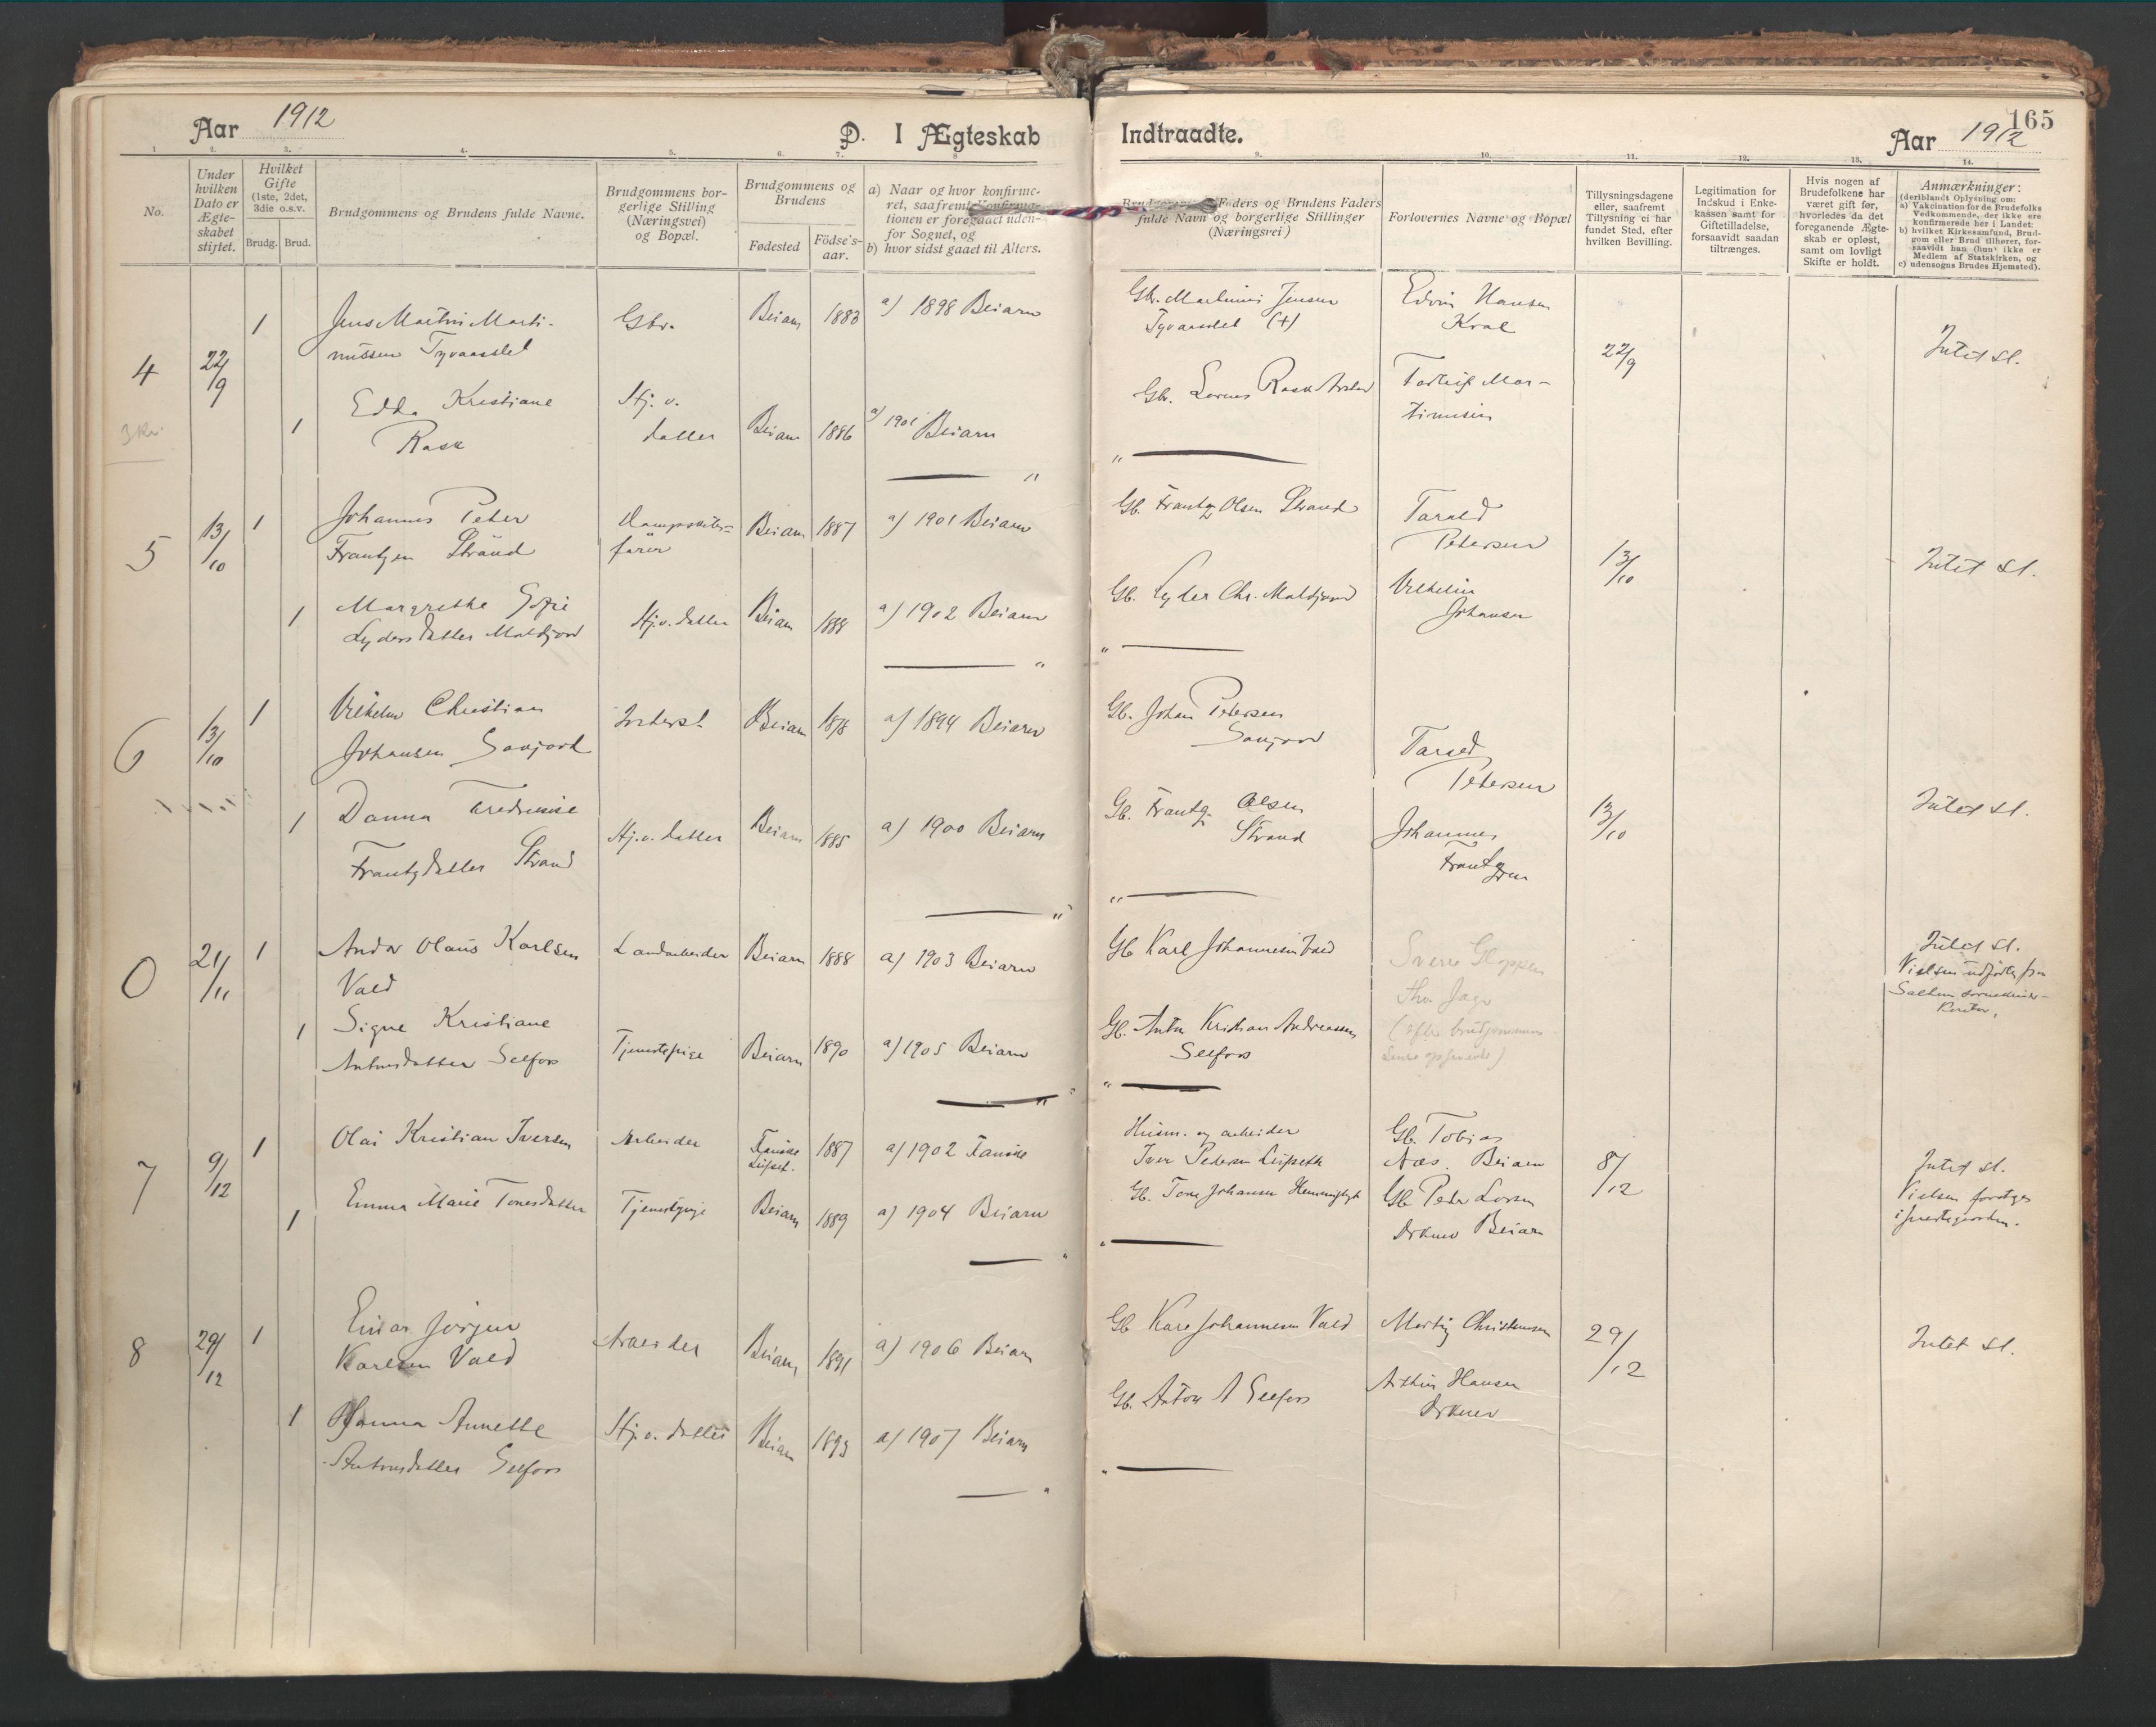 Aar 1912
D. I Ægteskab
Indtraadte.
165
Aar 1912
1. 2. 3. 4. 5. 6. 7. 8
9. 10. 11. 12. 13. 14.
No.
Under
hvilken
Dato er
Ægte-
skabet
stiftet.
Hvilket
Gifte
(1ste, 2det,
3die o.s.v.
Brudg. Brud.
Brudgommens og Brudens fulde Navne.
Brudgommens bor-
gerlige Stilling
(Næringsvei)
og Bopæl.
Brudgommens og
Brudens
Fødested
Födse's-
aar.
a) Naar og hvor konfirme-
ret, saafremt Konfirma-
tionen er foregaaet uden-
for Sognet, og
b) hvor sidst gaaet til Alters.
Faders og Brudens Faders
fulde Navn og borgerlige Stillinger
(Næringsvei)
Forlovernes Navne og Bopæl
Tillysningsdagene
eller, saafremt
Tillysning ei har
fundet Sted, efter
hvilken Bevilling.
Legitimation for
Indskud i Enke-
kassen samt for
Giftetilladelse,
forsaavidt saadan
tiltrænges.
Hvis nogen af
Brudefolkene har
været gift før,
hvorledes da det
foregaaende Ægte-
skab er opløst,
samt om lovligt
Skifte er holdt.
Anmærkninger:
(deriblandt Oplysning om:
a) Vakcination for de Brudefolks
Vedkommende, der ikke ere
konfirmerede her i Landet:
b) hvilket Kirkesamfund, Brud-
gom eller Brud tilhører, for-
saavidt han (hun) ikke er
Medlem af Statskirken, og
c) udensogns Brudes Hjemsted).
4
22/9
3 Kr.
1
Jens Martin Marti-
nussen Tyvaaslet
Gbr.
Beiarn 1883
a) 1898 Beiarn
Gbr. Martinus Jensen
Tyvaaslet (+)
Edvin Hansen
22/9
Intet sl.
1
Edda Kristiane
Rask
Hj. v.
datter
Beiarn 1886
a) 1901 Beiarn
Gbr. Rask
Mar-
tinusen
5
13/10
1
Johannes Peter
Frantzen Strand
fører
Beiarn 1887
a) 1901 Beiarn
Gb. Frantz Olsen Strand
Tarald
Petersen
13/10
Intet sl.
1
Margrethe Sofie
Lydersdatter Moldjord
Hj.v. datter
Beiarn 1888
a) 1902 Beiarn
Gb. Lyder Chr. Moldjord
Vilhelm
Johansen
6
13/10
1
Vilhelm Christian
Johansen Savjord
Beiarn 1878
a) 1894 Beiarn
Gb. Johan Petersen
Savjord
Tarald
Petersen
13/10
Intet sl.
1
Danna Fredrikke
Frantzdatter Strand
Hj.v. datter
Beiarn 1885
a) 1900 Beiarn
Gb. Frantz Olsen
Strand
Johannes
Frantzen
0
21/11
1
Andor Olaus Karlsen
Vold
Landarbeider
Beiarn 1888
a) 1903 Beiarn
Gb Karl Johannesen Vold
Sverre
Intet sl.
Vielsen udført fra
Saltens sorenskriver-
kontor.
1
Signe Kristiane
Antonsdatter Selfors
Tjenestepige
Beiarn 1890
a) 1905 Beiarn
Gb. Anton Kristian Andreassen
Selfors
7
9/12
1
Olai Kristian Iversen
Arbeider
Fauske 1887
a) 1902 Fauske
Husm. og arbeider
Iver Pedersen
Gb. Tobias
Næs. Beiarn
8/12
Intet sl.
Vielsen foretages
i prestegaarden.
1
Emma Marie Tonesdatter
Tjenestepige
Beiarn 1889
a) 1904 Beiarn
Gb. Tone Johansen
Gb Peder Larsen
Beiarn
8
29/12
1
Einar Jørgen
Karlsen Vold
Arbeider
Beiarn 1891
a) 1906 Beiarn
Gb Karl Johannesen Vold
Martin Christensen
29/12
Intet sl.
1
Hanna Annette
Antonsdatter Selfors
Hj.v. datter
Beiarn 1893
a) 1907 Beiarn
Gb. Anton A Selfors
Hansen